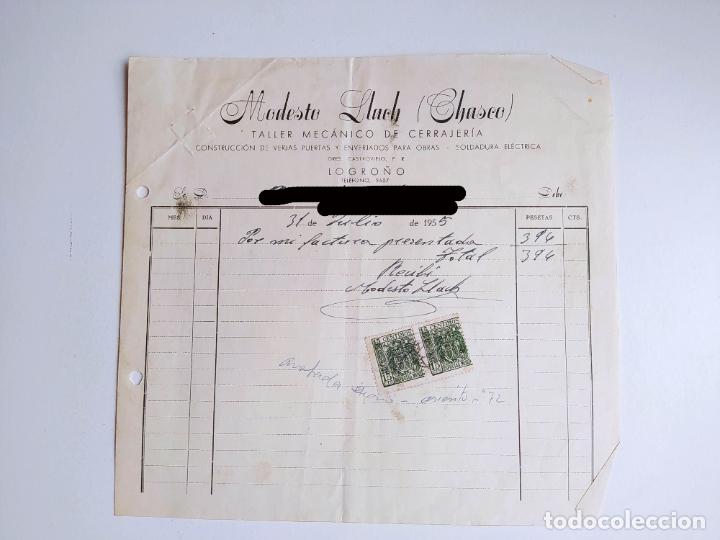 Modesto Llach (Chasco)
TALLER MECÁNICO DE CERRAJERÍA
CONSTRUCCIÓN DE VERJAS PUERTAS Y ENVERJADOS PARA OBRAS - SOLDADURA ELÉCTRICA
DRES. CASTROVIEJO, P. R.
LOGROÑO
TELÉFONO, 5487
Sr. D. Debe
MES DIA 31 de Julio de 1955 PESETAS CTS.
Por mi factura presentada 394
Total 394
Recibí
Modesto Llach
anotada asiento nº 72
todocoleccion
todocoleccion.net